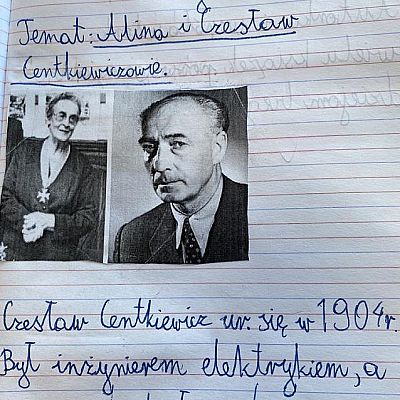 Temat: Alina i Czesław
Centkiewiczowie.
Czesław Centkiewicz ur. się w 1904r.
Był inżynierem elektrykiem, a